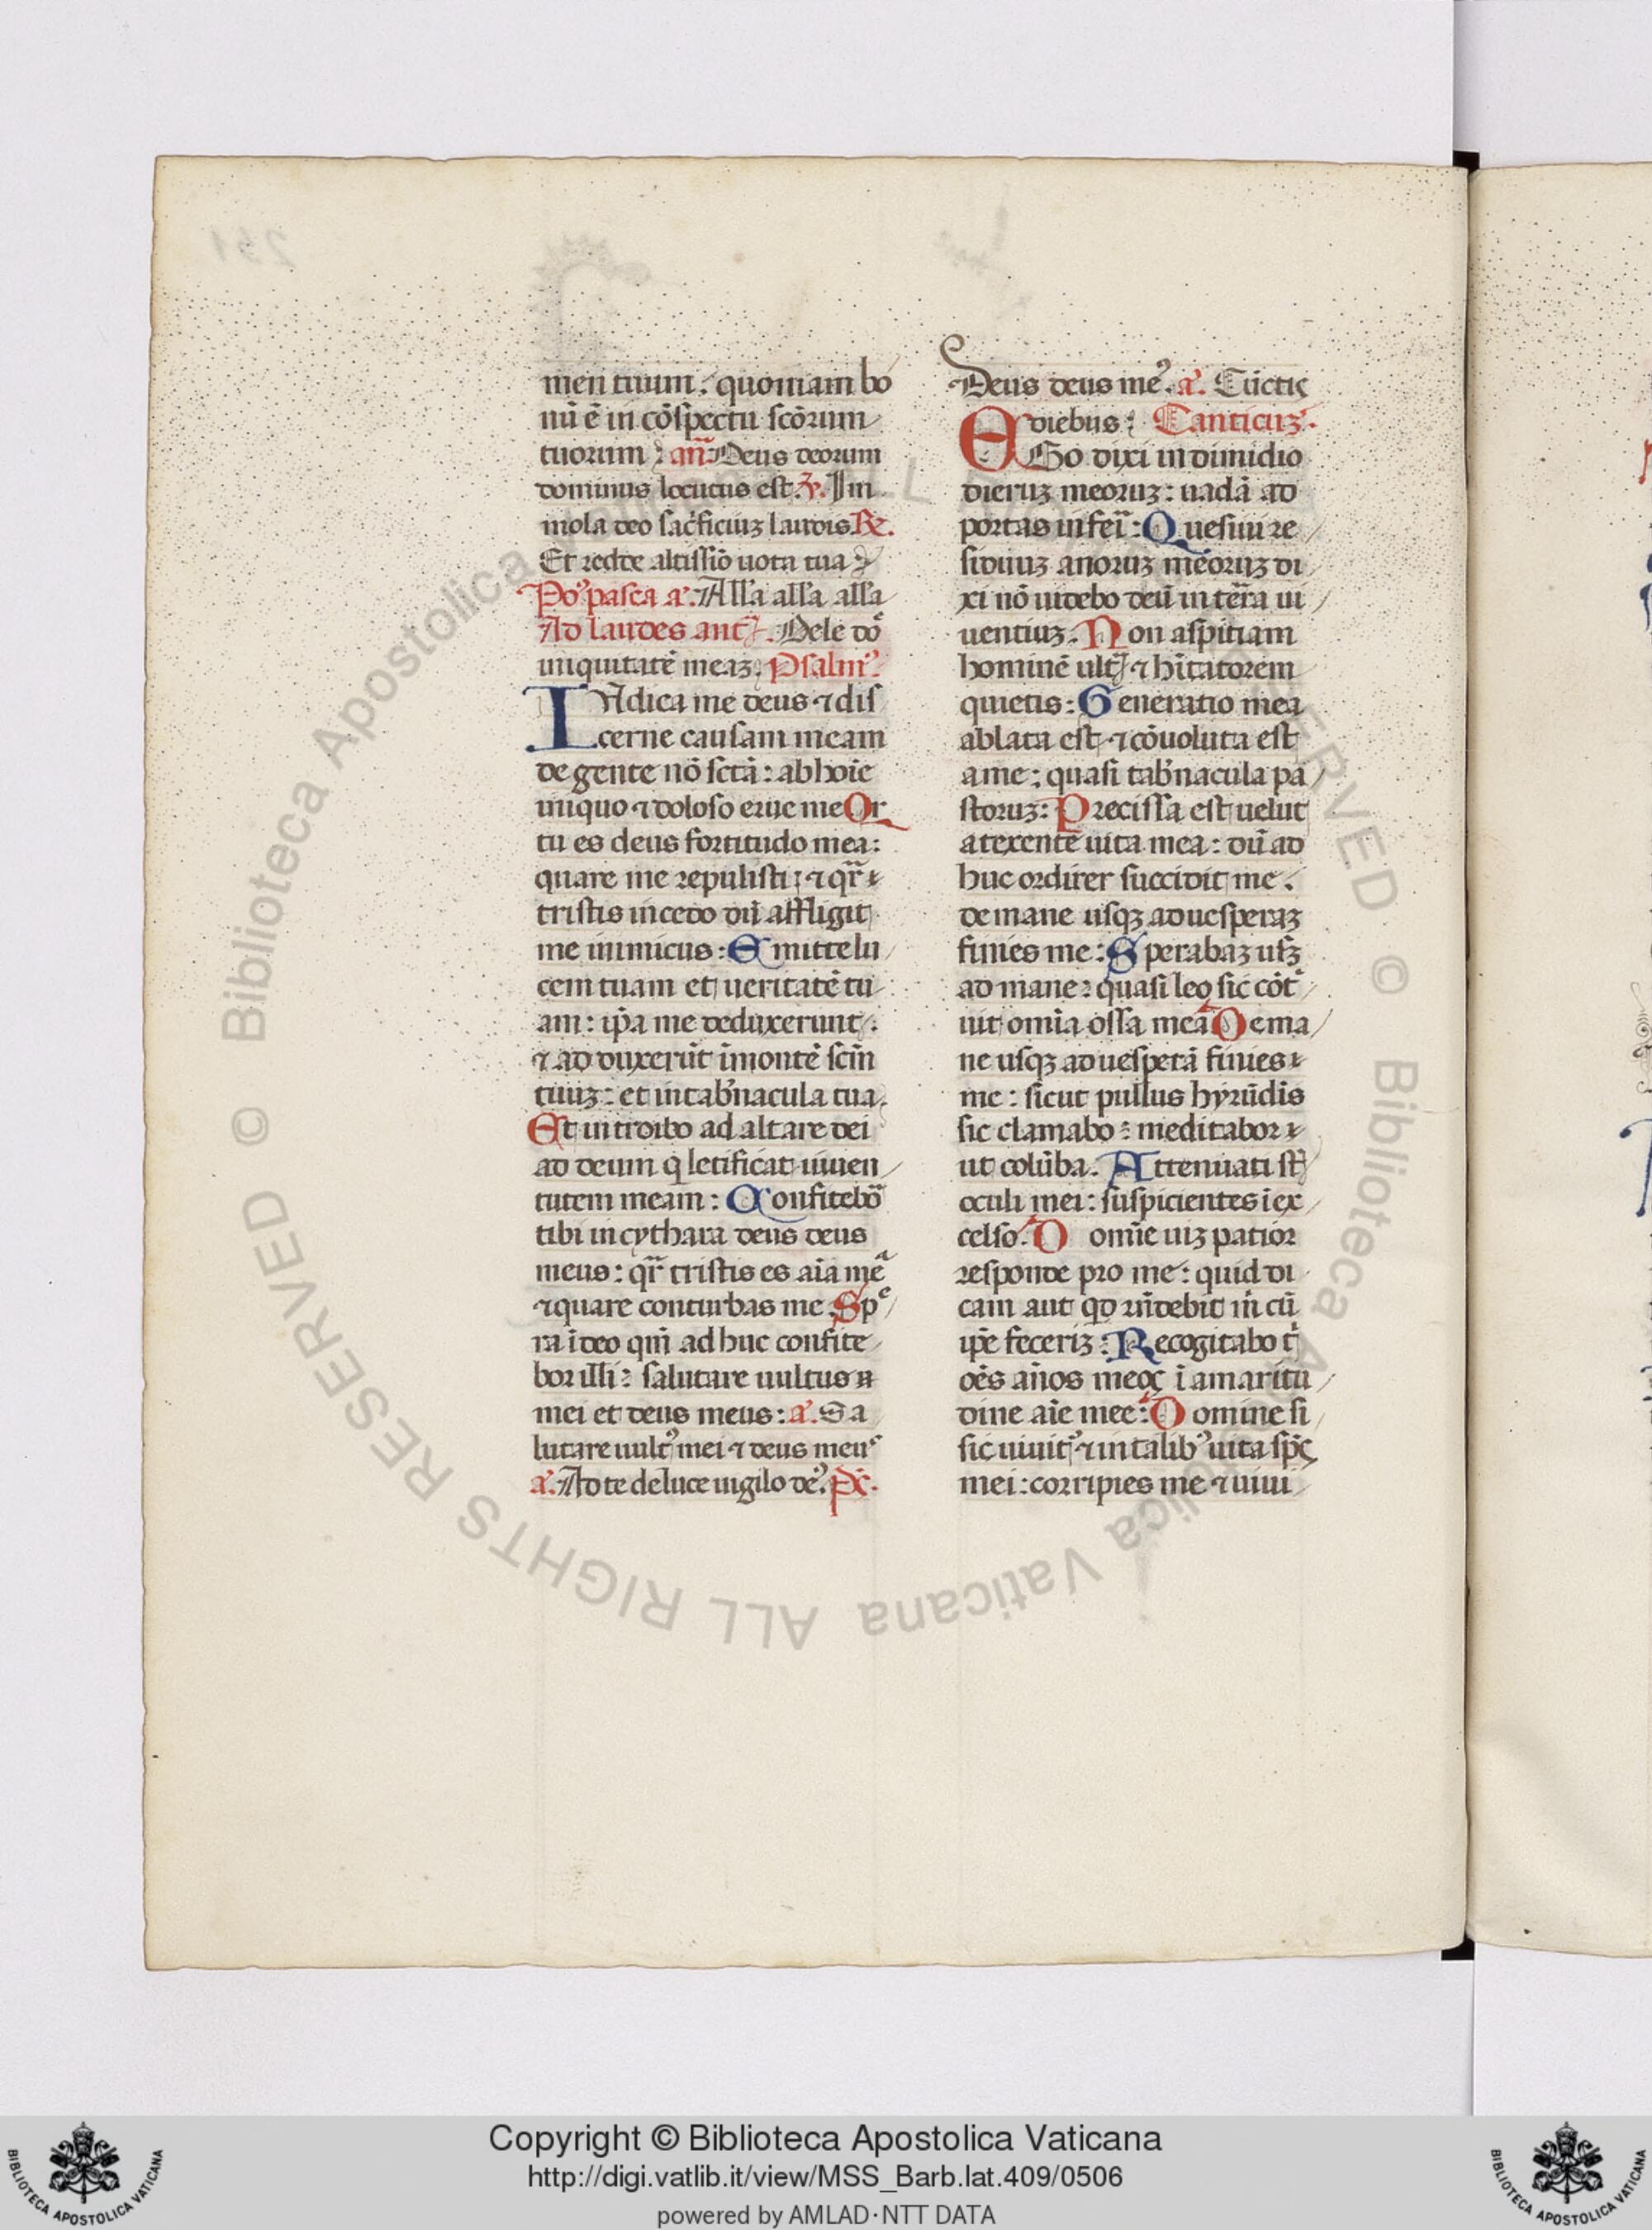 men tuum: quoniam bo
nū ē in cōspectu scōrum
tuorum: añ. Deus deorum
dominus locutus est. v. Im
mola deo sac̓ficiuz laudis R.
Et redde altissiō uota tua
Po᾽ pasca a. All'a all'a all'a
Ad laudes ant. Dele dō
iniquitatē meaz. Psalm᾽
Iudica me deus ⁊ dis
cerne causam meam
de gente nō sctā: ab hoīe
iniquo ⁊ doloso erue me Qr
tu es deus fortitudo mea:
quare me repulisti: ⁊ qr̄
tristis incedo dū affligit
me inimicus: Emitte lu
cem tuam et ueritatē tu
am: ip̄a me deduxerunt:
⁊ ad duxerūt īmontē scm̄
tuuz: et in tab̓nacula tua.
Et introibo ad altare dei
ad deum q letificat iuuen
tutem meam: Confitebō
tibi in cythara deus deus
meus: qr̄ tristis es aīa meᵃ
⁊ quare conturbas me Spᵉ
ra ī deo qm̄ ad huc confite
bor illi: salutare uultus
mei et deus meus: a. Sa
lutare uult᾽ mei ⁊ deus meuˢ
a. Ad te de luce uigilo de᾽. Ps.
Deus deus me᾽. a. Cūctis
diebus: Canticuz.
EGo dixi in dimidio
dieruz meoruz: uadā ad
portas inferī: Quesiui re
siduuz anoruz meoruz di
xi nō uidebo deū in terra ui
uentiuz. Non aspitiam
hominē ult ⁊ hītatorem
quietis: Generatio mea
ablata est ⁊ cōuoluta est
a me: quasi tab̓nacula pa
storuz: Precissa est uelut
a texente uita mea: dū ad
huc ordirer succidit me:
de mane usqz ad uesperaz
finies me: Sperabaz usqz
ad mane: quasi leo sic cōt
iuit omīa ossa mea De ma
ne usqz ad uesperā finies
me: sicut pullus hyrūdis
sic clamabo: meditabor
ut colūba. Attenuati st̄
oculi mei: suspicientes ī ex
celso. Domīe uiz patior
responde pro me: quid di
cam aut qd rn̄debit m̄ cū
ip̄e feceriz: Recogitabo t
oēs ān̄os meos ī amaritu
dine aīe mee: Domine si
sic uiuit᾽ ⁊ in talib᾽ uita sp̄s
mei: corripies me ⁊ uiui
© Biblioteca Apostolica Vaticana ALL RIGHTS RESERVED © Biblioteca Apostolica Vaticana ALL RIGHTS RESERVED
Copyright © Biblioteca Apostolica Vaticana
http://digi.vatlib.it/view/MSS_Barb.lat.409/0506
powered by AMLAD·NTT DATA
BIBLIOTECA APOSTOLICA VATICANA
BIBLIOTECA APOSTOLICA VATICANA